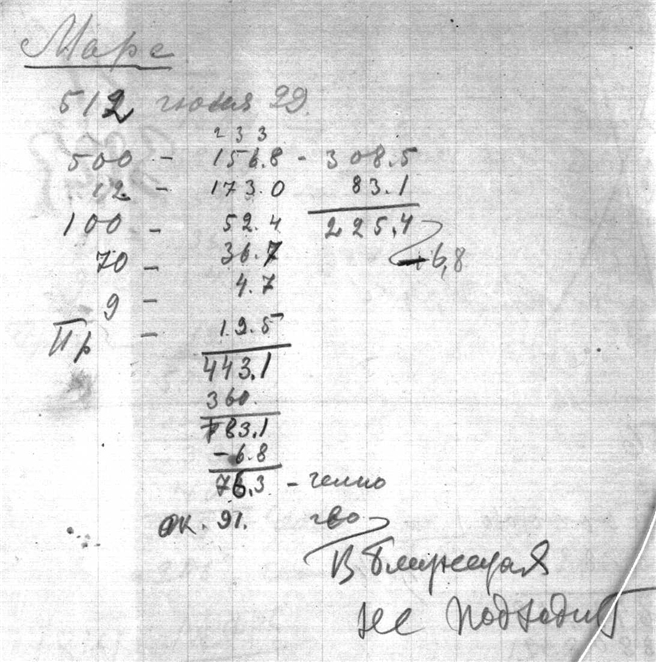 Марс
512 июня 22
2 3 3
500 - 156.8 - 308.5
12 - 173.0 83.1
100 - 52.4 225.4
70 - 36.7 +6,8
9 - 4.7
Пр - 19.5
443.1
360.
83.1
-6.8
76.3 - гелио
ок. 91. гео
В ближнюю
не подходит